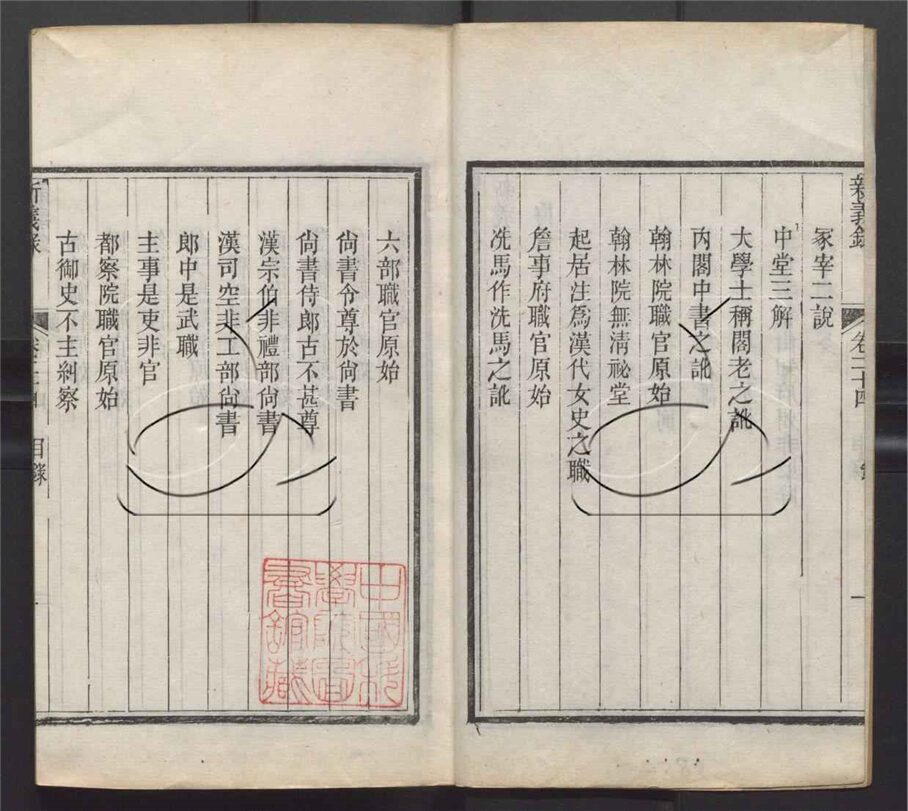 新義錄
卷二十四
冢宰二說
中堂三解
大學士稱閣老之訛
內閣中書之訛
翰林院職官原始
翰林院無清祕堂
起居注爲漢代女史之職
詹事府職官原始
冼馬作洗馬之訛
六部職官原始
尙書令尊於尙書
尙書侍郎古不甚尊
漢宗伯非禮部尙書
漢司空非工部尙書
郎中是武職
主事是吏非官
都察院職官原始
古御史不主糾察
目錄
一
中國科
學院圖
書館藏